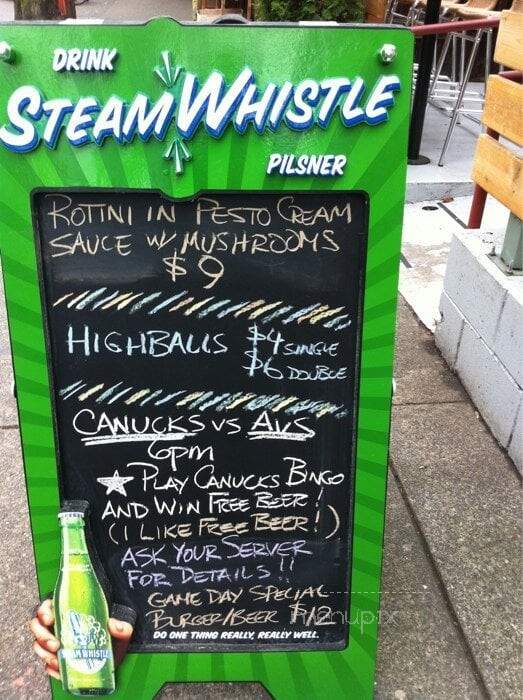 DRINK
STEAMWHISTLE
PILSNER
ROTINI IN PESTO CREAM
SAUCE W/ MUSHROOMS
$9
HIGHBALLS $4 SINGLE
$6 DOUBLE
CANUCKS VS AVS
6pm
PLAY CANUCKS BINGO
AND WIN FREE BEER!
(I LIKE FREE BEER!)
ASK YOUR SERVER
FOR DETAILS!!
GAME DAY SPECIAL
BURGER/BEER $12
menupix
DO ONE THING REALLY, REALLY WELL.
STEAM WHISTLE